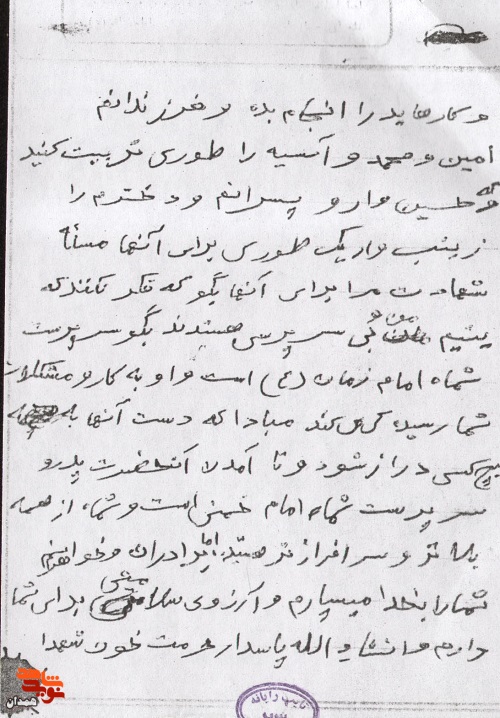 و کارهاید را انجام بده و فرزندانم
امین و محمد و آسیه را طوری تربیت کنید
که حسین وار و پسرانم و دخترم را
زینب وار یک طوری برای آنها مسئله
شهادت مرا برای آنها بگو که فکر نکنند که
یتیم و بی سرپرس هستند بگو سرپرست
شما امام زمان (ع) است و او به کار و مشکلات
شما رسیدگی می کند مبادا که دست آنها به
هیچ کسی دراز شود و تا آمدن آنحضرت پدر و
سرپرست شما امام خمینی است و شما از همه
بالاتر و سرافرازتر هستید اما برادران و خواهرانم
شما را بخدا میسپارم و آرزوی سلامتی برای شما
دارم و انشاء الله پاسدار حرمت خون شهدا
نوید شاهد
همدان